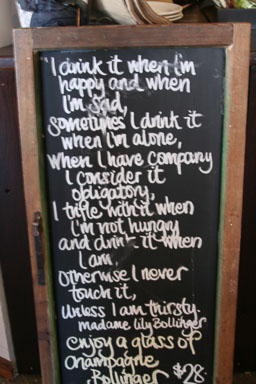 "I drink it when I'm
happy and when
I'm sad,
sometimes I drink it
when I'm alone,
when I have company
I consider it
obligatory,
I trifle with it when
I'm not hungry
and drink it when
I am.
Otherwise I never
touch it,
unless I am thirsty
madame Lily Bollinger
enjoy a glass of
champagne
Bollinger $28-